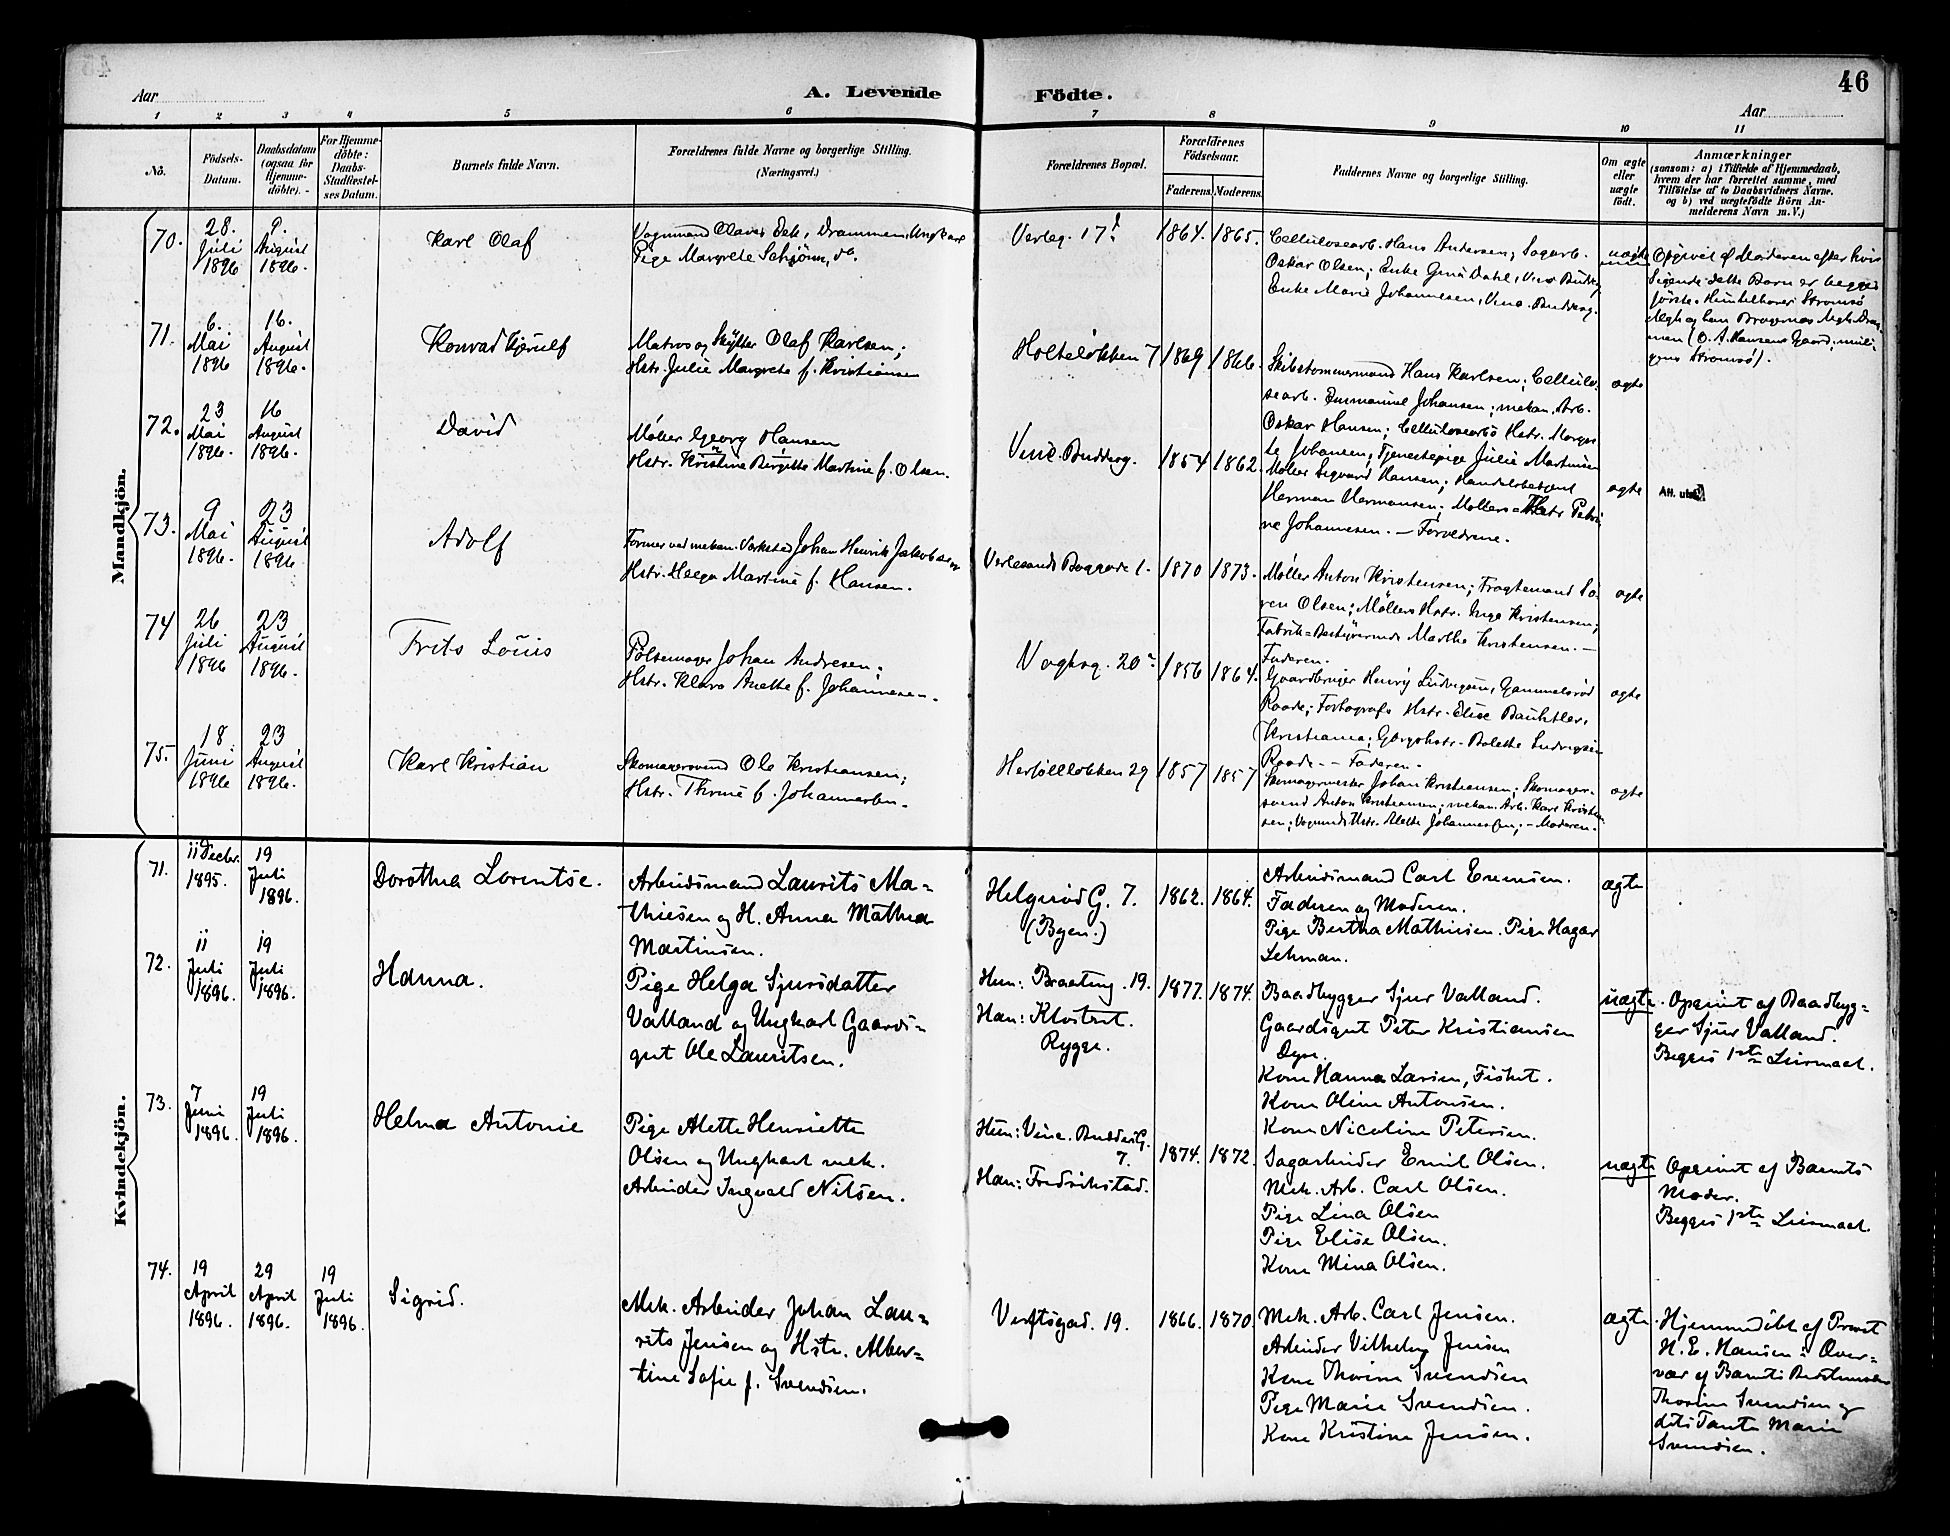 46
Aar
A. Levende Födte.
Aar
1 2 3 4 5 6 7 8 9 10 11
No.
Födsels-Datum.
Daabsdatum (ogsaa for Hjemme-döbte).
For Hjemme-döbte: Daabs-Stadfæstel-ses Datum.
Barnets fulde Navn.
Forældrenes fulde Navne og borgerlige Stilling.
(Næringsvei.)
Forældrenes Bopæl.
Forældrenes Födselsaar.
Faderens. Moderens.
Faddernes Navne og borgerlige Stilling.
Om ægte eller uægte födt.
Anmærkninger
(saasom: a) i Tilfælde af Hjemmedaab,
hvem der har forrettet samme, med
Tilföielse af to Daabsvidners Navne.
og b) ved uægtefödte Börn An-
melderens Navn m. V.)
Mandkjön.
70.
28. Juli 1896
9. August 1896.
Karl Olaf
Pige Margrete
17
1864. 1865.
Cellulosearb. Hans Andersen; Sagarb.
Oskar Olsen; Enke Gina Dahl,
Enke Marie Johannesen,
uægte
Opgivet af Moderen efter hvis
Sigende dette Barn er begges
förste.
71.
6. Mai 1896
16. August 1896.
Konrad Kjerulf
Matros og Skytter Olaf Karlsen;
Hstr. Julie Margrete f. Kristiansen
Holteløkken 7
1869 1866.
Skibstømmermand Hans Karlsen; Cellulo-
searb. Emmanuel Johansen; mekan. Arb.
Oskar Hansen; Cellulosearbs Hstr. Margre-
te Johansen; Tjenestepige Julie Martinsen
ægte
72.
23 Mai 1896.
16 August 1896.
David
Møller Georg Hansen
Hstr. Kristine Birgitte Martine f. Olsen.
Vinc. Buddesg.
1854 1862.
Møller Sigvard Hansen; Handelsbetjent
Herman Hermansen; Møllers Hstr. Petri-
ne Johannesen. — Forældrene.
ægte
Att. utst.
73.
9 Mai 1896.
23 August 1896
Adolf
Former ved mekan. Værksted Johan Henrik Jakobsen
Hstr. Helga Martine f. Hansen.
1.
1870 1873.
Møller Anton Kristensen; Fragtemand Sø-
ren Olsen; Møllers Hstr. Inga Kristensen;
Fabrik-Bestyrerinde Marthe Kristensen. —
Faderen.
ægte
74
26 Juli 1896
23 August 1896.
Frits Louis
Pølsemager Johan Andresen.
Hstr. Klara Anette f. Johannesen.
Vogtsg. 20
1856 1864.
Gaardbruger Henry Ludvigsen, Gammelsrød
Raade; Fotografs Hstr. Elise
Kristiania; Bolette Ludvigsen
Raade -- Faderen.
ægte
75.
18 Juni 1896
23 August 1896.
Karl Kristian
Skomagersvend Ole Kristiansen;
Hstr. Thrine f. Johannesen.
29
1857 1857
Skomagermester Johan Kristiansen; Skomager-
svend Anton Kristiansen; mekan. Arb. Karl Kristian-
sen; Vognmds Hstr. Alette — Moderen.
ægte
Kvindekjön.
71.
11 Decbr. 1895.
19 Juli 1896.
Dorothea Lorentse.
Arbeidsmand Laurits Ma-
thiesen og H. Anna Mathea
Martinsen.
Helgerød G. 7.
(Byen.)
1862. 1864.
Arbeidsmand Carl Evensen.
Faderen og Moderen.
Pige Bertha Mathisen. Pige Hagar
Lehman.
ægte
72.
11 Juli 1896.
19 Juli 1896.
Hanna.
Pige Helga Sjursdatter
Valland og Ungkarl Gaards-
gut Ole Lauritsen.
Hun: Braating. 19.
Han: Klostret.
Rygge.
1877. 1874.
Baadbygger Sjur Valland.
Gaardsgut Peter Kristiansen
Dyre.
Kone Hanna Larsen,
Kone Oline Antonsen.
Kone Nicoline Petersen.
uægte.
Opgivet af Baadbyg-
ger Sjur Valland.
Begges 1ste Leiermaal.
73.
7 Juni 1896.
19 Juli 1896.
Helma Antonie
Pige Alette Henriette
Olsen og Ungkarl mek.
Arbeider Ingvald Nilsen.
Hun: Vinc. Buddes G.
7.
Han: Fredrikstad.
1874. 1872.
Sagarbeider Emil Olsen.
Mek. Arb. Carl Olsen.
Pige Lina Olsen
Pige Elise Olsen.
Kone Mina Olsen.
uægte
Opgivet af Barnets
Moder.
Begges 1ste Leiermaal.
74.
19 April 1896.
29 April 1896.
19 Juli 1896.
Sigrid.
Mek. Arbeider Johan Lau-
rits Jensen og Hstr. Alber-
tine Sofie f. Svendsen.
Verftsgad. 19.
1866. 1870
Mek. Arb. Carl Jensen.
Arbeider Vilhelm Jensen
Kone Thorine Svendsen
Pige Marie Svendsen.
Kone Kristine Jensen.
ægte.
Hjemmedöbt af Provst
H. E. Hansen i Over-
vær af Barnets Bedstemoder
Thorine Svendsen og
dets Tante Marie
Svendsen.